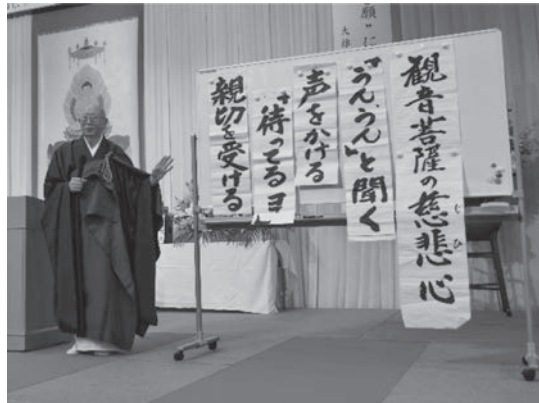 願”に
大雄
観音菩薩の慈悲心
じひ
「うん、うん」と聞く
声をかける
「待ってるヨ」
親切を受ける